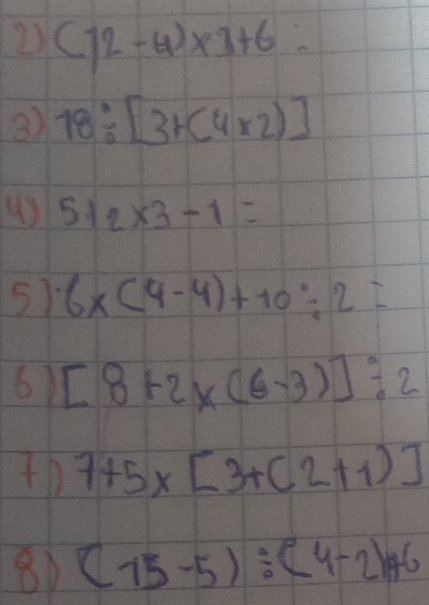 2) (12-4)×3+6 =
3) 18÷[3+(4×2)]
4) 5+2×3-1=
5) 6×(4-4)+10÷2=
6) [8+2×(6-3)]÷2
7) 7+5×[3+(2+1)]
8) (15-5)÷(4-2)+6